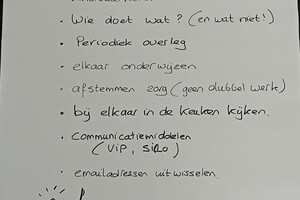 • Wie doet wat? (en wat niet!)
• Periodiek overleg
• elkaar onderwijzen
• afstemmen zorg (geen dubbel werk)
• bij elkaar in de keuken kijken.
• Communicatiemiddelen
(VIP, Silo)
• emailadressen uitwisselen